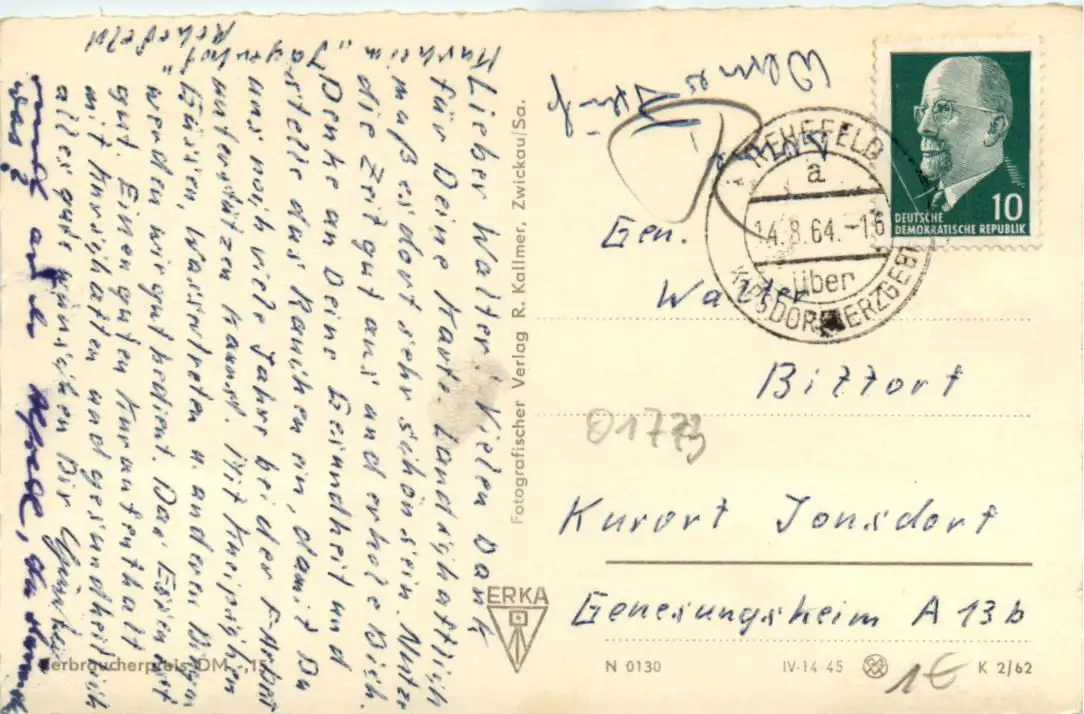 Kurheim „Jägerhof"
Rehefeld
Lieber Walter! Vielen Dank
für Deine Karte. Landschaftlich
muß es dort sehr schön sein. Nutze
die Zeit gut aus und erhole Dich.
Denke an Deine Gesundheit und
stelle das Rauchen ein, damit Du
uns noch viele Jahre bei der Arbeit
unterstützen kannst. Mit Kneippschen
Güssen, Wassertreten u. anderen Dingen
werden wir gut bedient. Das Essen ist
gut. Einen guten Kuraufenthalt
mit Kurschatten und gesundheitlich
alles gute wünschen Dir Günther
und auch Alfred, da staunst
was?
Fotografischer Verlag R. Kallmer, Zwickau/Sa.
ERKA
Verbraucherpreis DM -.15
DEUTSCHE
DEMOKRATISCHE REPUBLIK
10
REHEFELD
a
14.8.64.-16
über
KIPSDORF (ERZGEB)
Gen.
Walter
Bittort
01773
Kurort Jonsdorf
Genesungsheim A 13b
N 0130 IV-14-45 K 2/62
1€